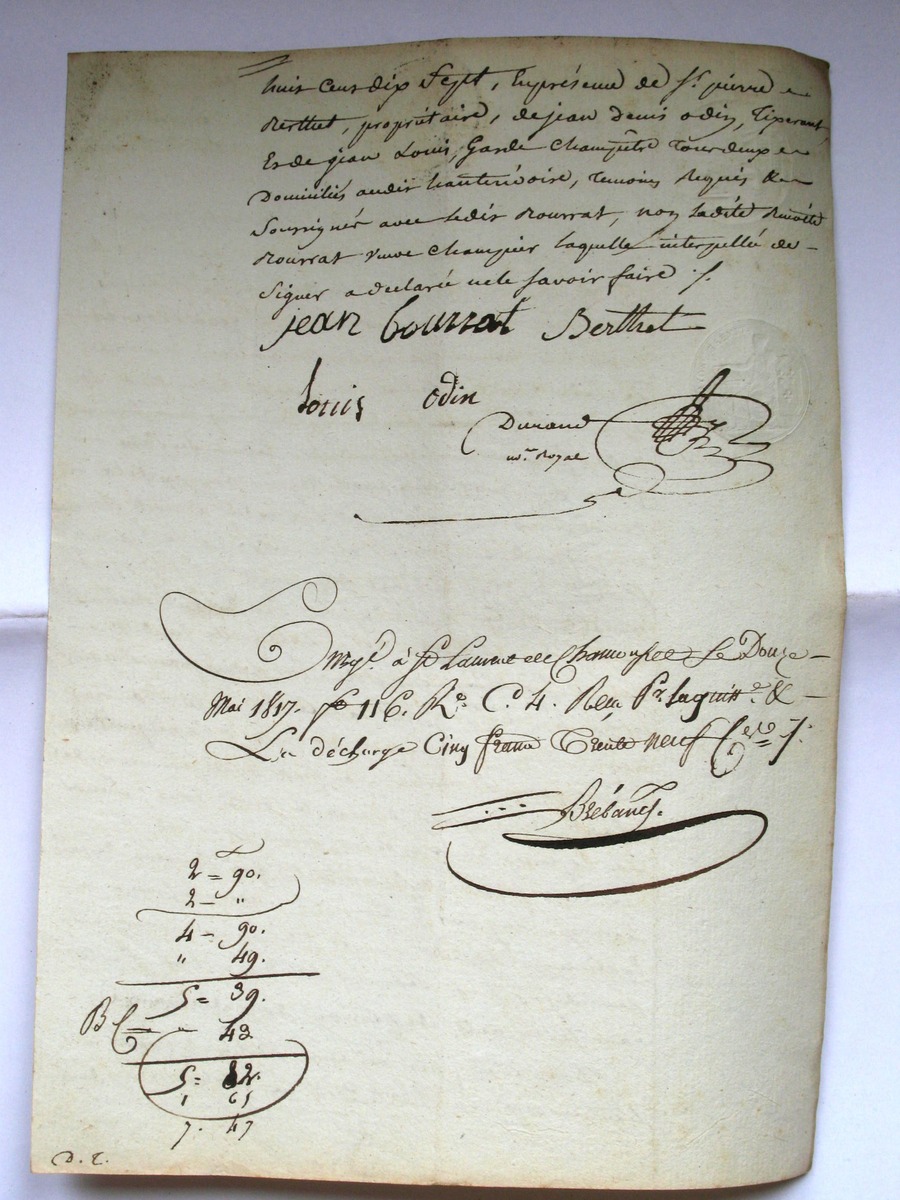 huit cent dix sept, En présence de Sr. pierre
Berthet, propriétaire, de jean denis odin,
Et de jean Louis, Garde Champêtre Tous deux
Domiciliés audit hauterivoire, temoins Requis &
Soussignés avec ledit Bourrat, non ladite Benoîte
Bourrat veuve Champier laquelle interpellée de
Signer a declaré ne le savoir faire ./.
jean bourrat Berthet
Louis odin
Durand
nre. Royal
Enregé. à St Laurent de Chamousset Le Douze
Mai 1817. fo 116. Ro. C. 4. Reçu Pr. la quittce. &
La décharge Cinq francs Trente neuf
Brébant.
2 = 90.
2 - "
4 - 90.
" 49.
5 = 39.
B - 43.
5 = 82.
1 65
7. 47
D. T.